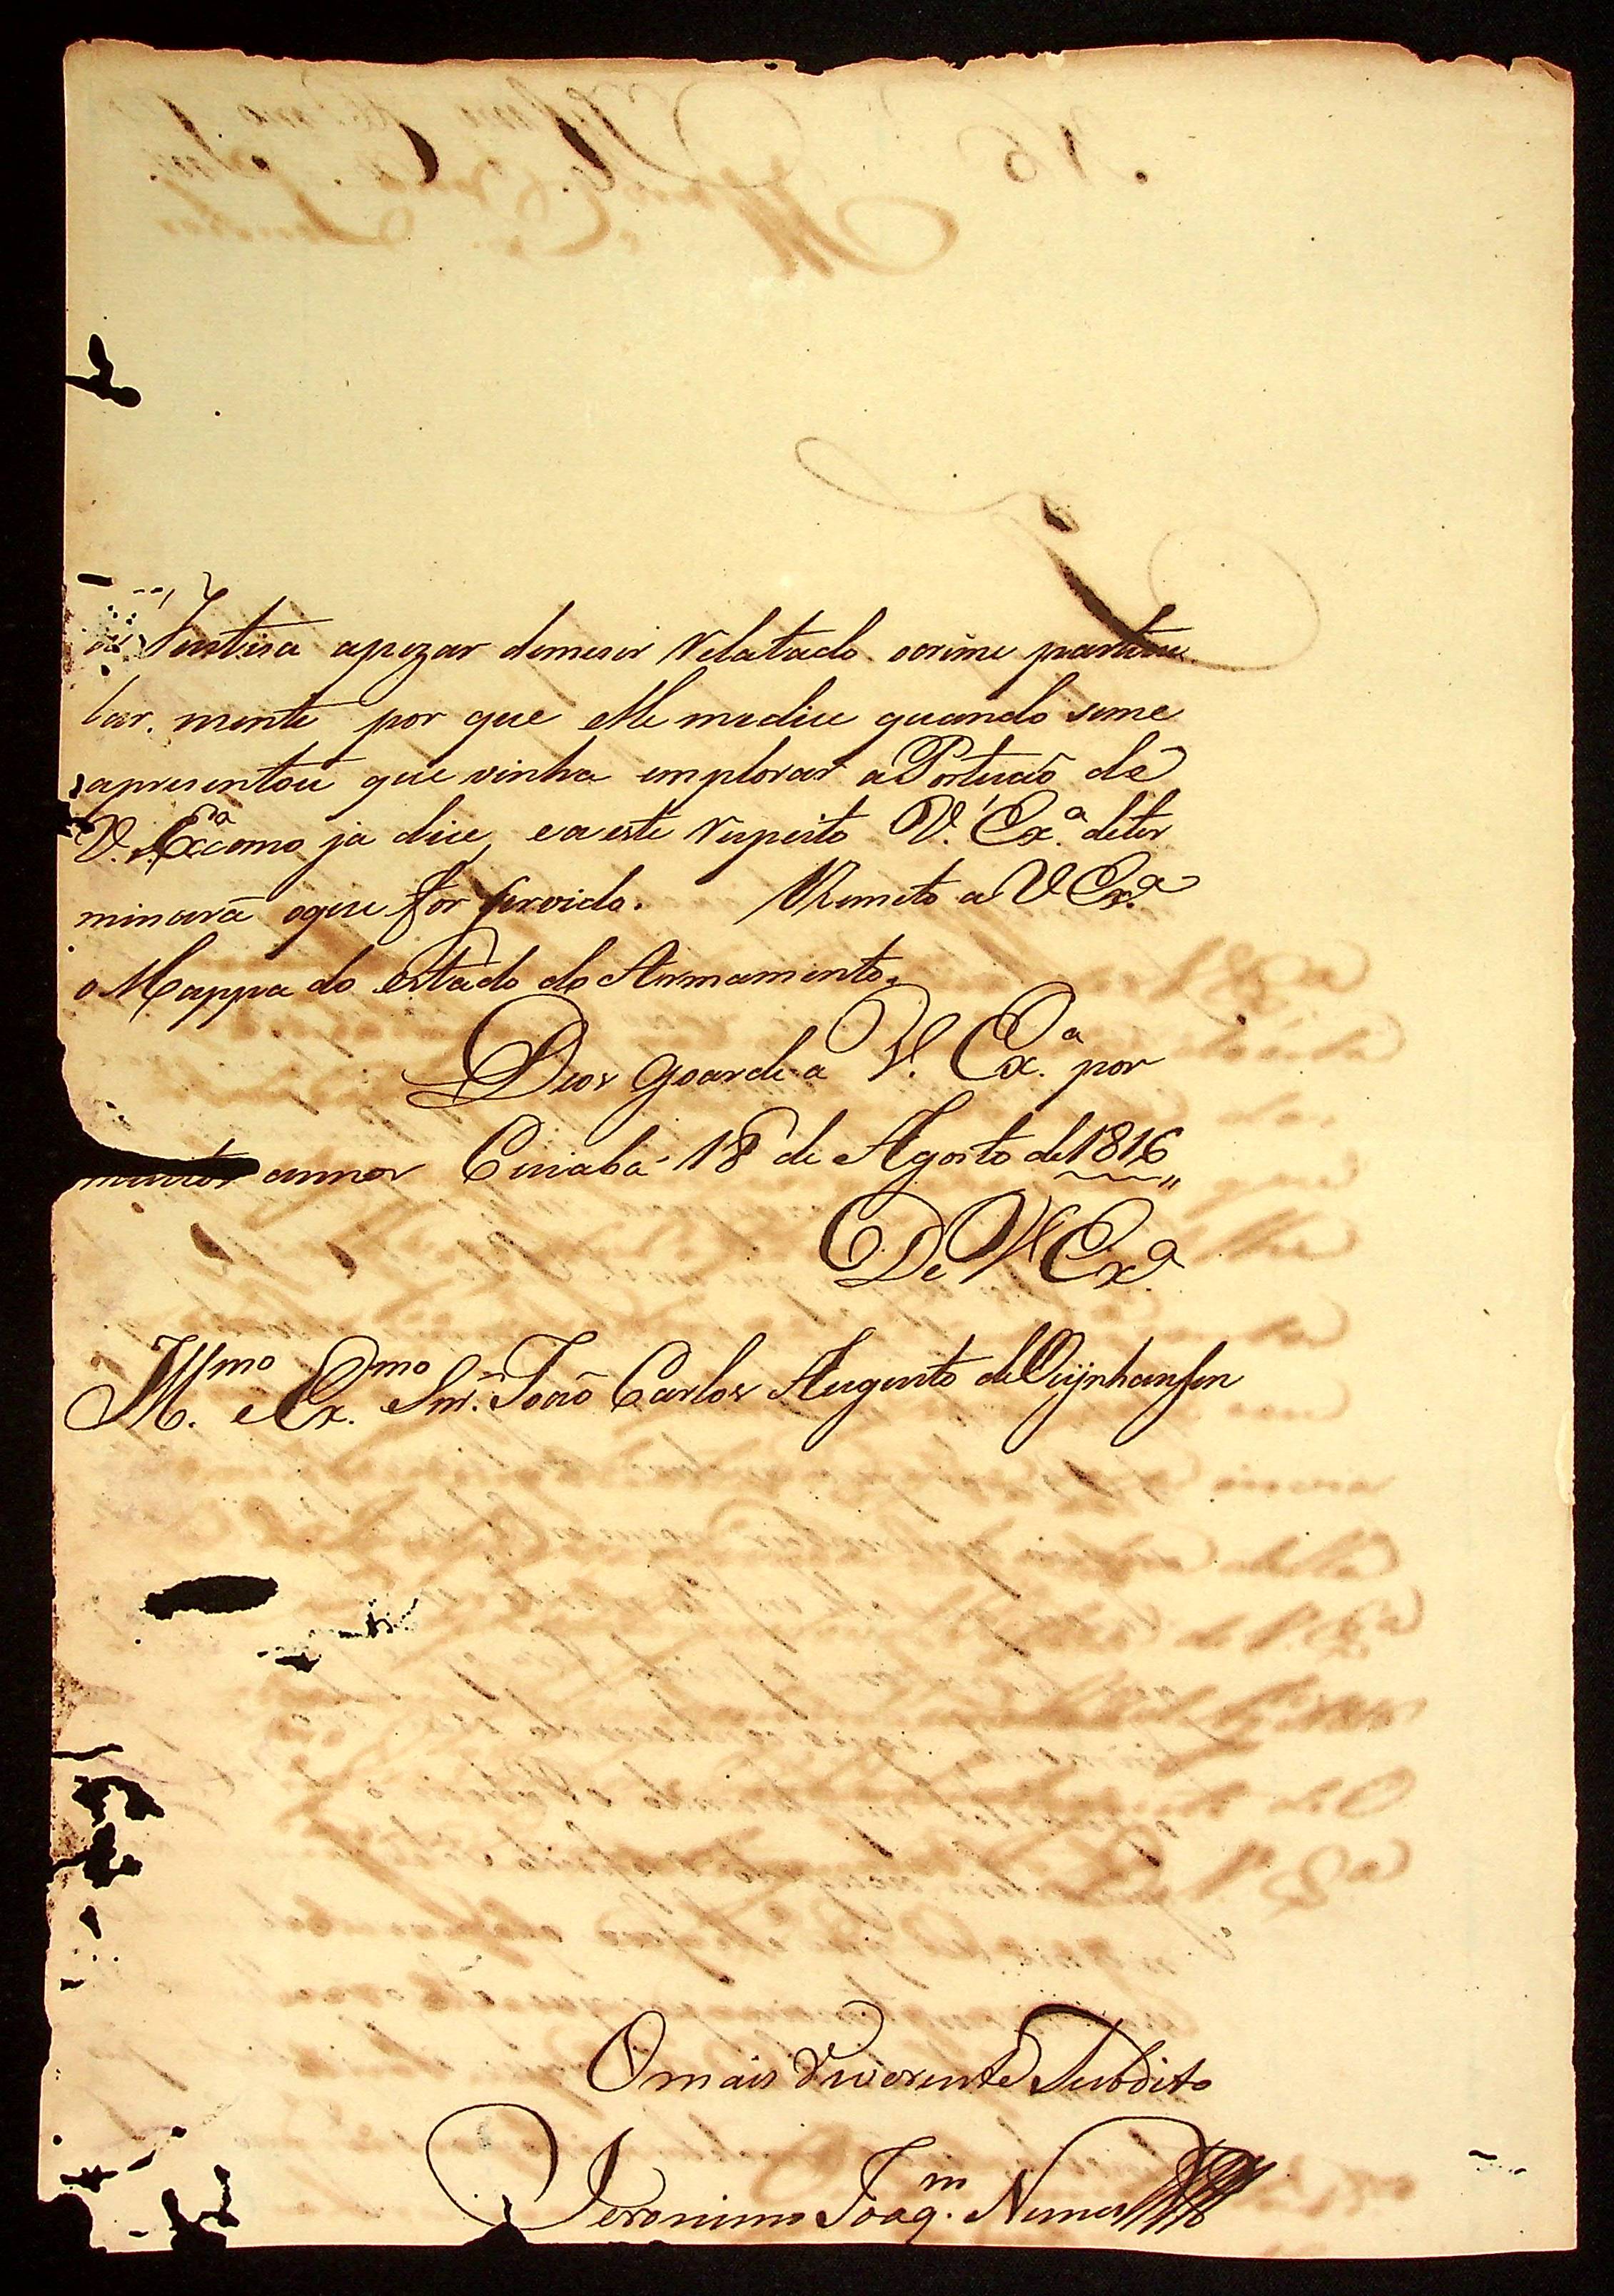 Justisa apezar demeser Relatado ocrime particu
lar. mente por que elle medice quando seme
apresentou que vinha emplorar aPorteuçaõ de
V. Exª como ja dice, e aeste respeito V. Exª. deter
minará oque for servido. Remeto a V Exª
o Mappa do estado do Armamento,
Deos goarde a V. Exª. por
muitos annos Cuiabá 18 de Agosto de 1816
De V Exª
Ill.mo e Ex.mo Snr. Joaõ Carlos Augusto de Oÿnhausen
O mais Reverente Subdito
Jeronimo Joaq.m Nunes